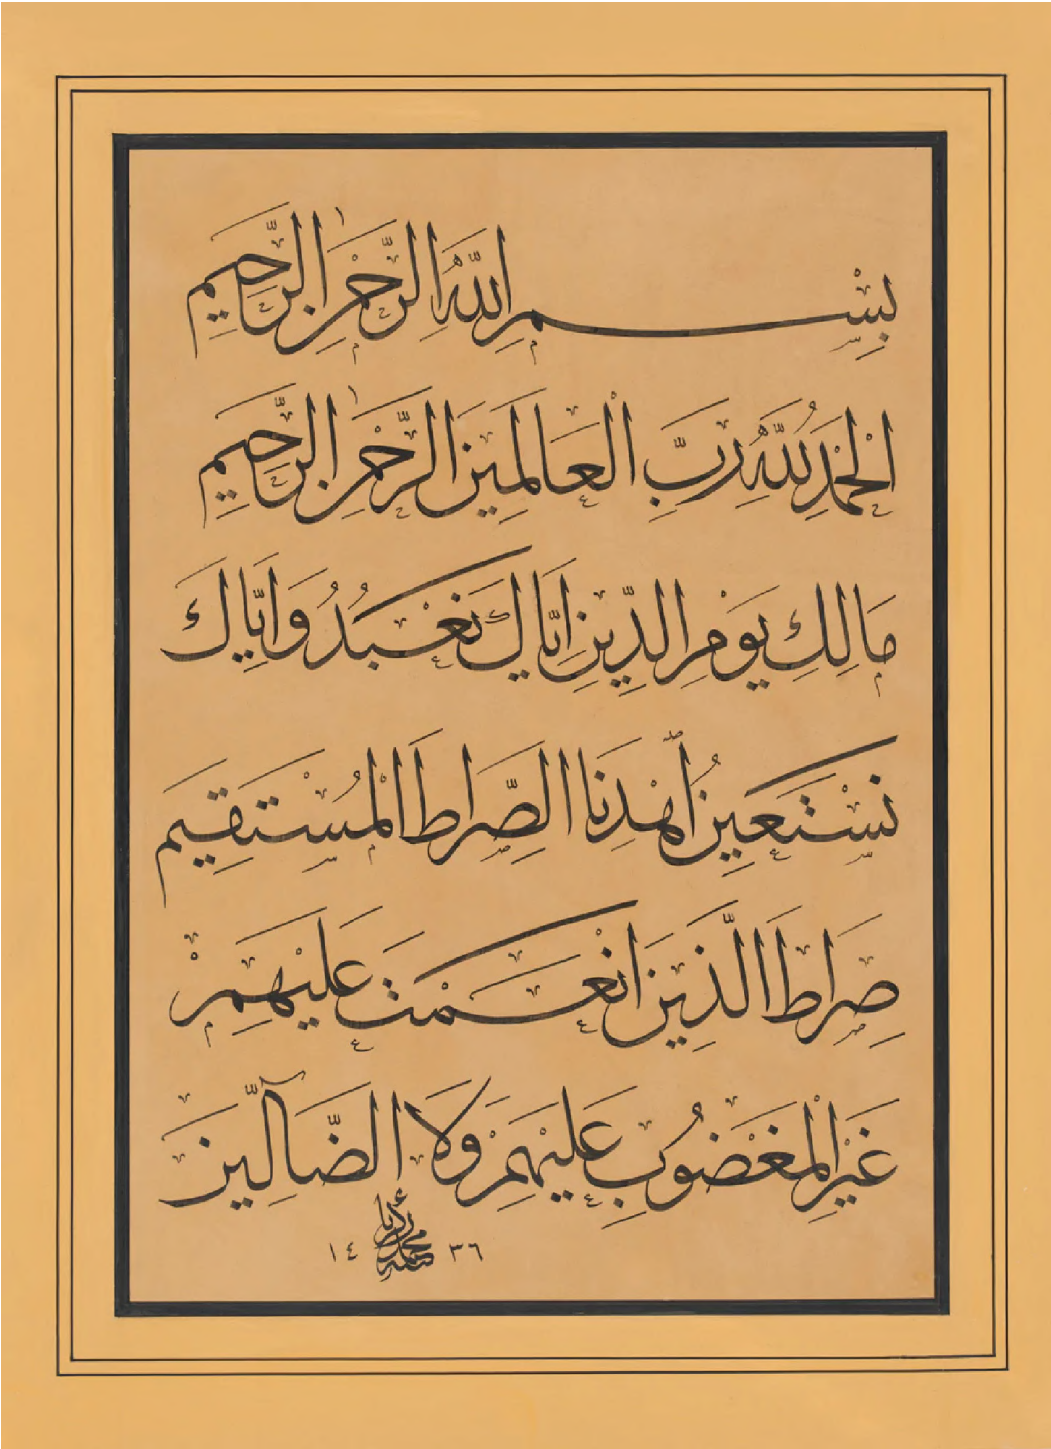 بِسْمِ اللَّهِ الرَّحْمٰنِ الرَّحِيمِ
الْحَمْدُ لِلَّهِ رَبِّ الْعَالَمِينَ الرَّحْمٰنِ الرَّحِيمِ
مَالِكِ يَوْمِ الدِّينِ اِيَّاكَ نَعْبُدُ وَاِيَّاكَ
نَسْتَعِينُ اهْدِنَا الصِّرَاطَ الْمُسْتَقِيمَ
صِرَاطَ الَّذِينَ انْعَمْتَ عَلَيْهِمْ
غَيْرِ الْمَغْضُوبِ عَلَيْهِمْ وَلَا الضَّالِّينَ
١٤٣٦